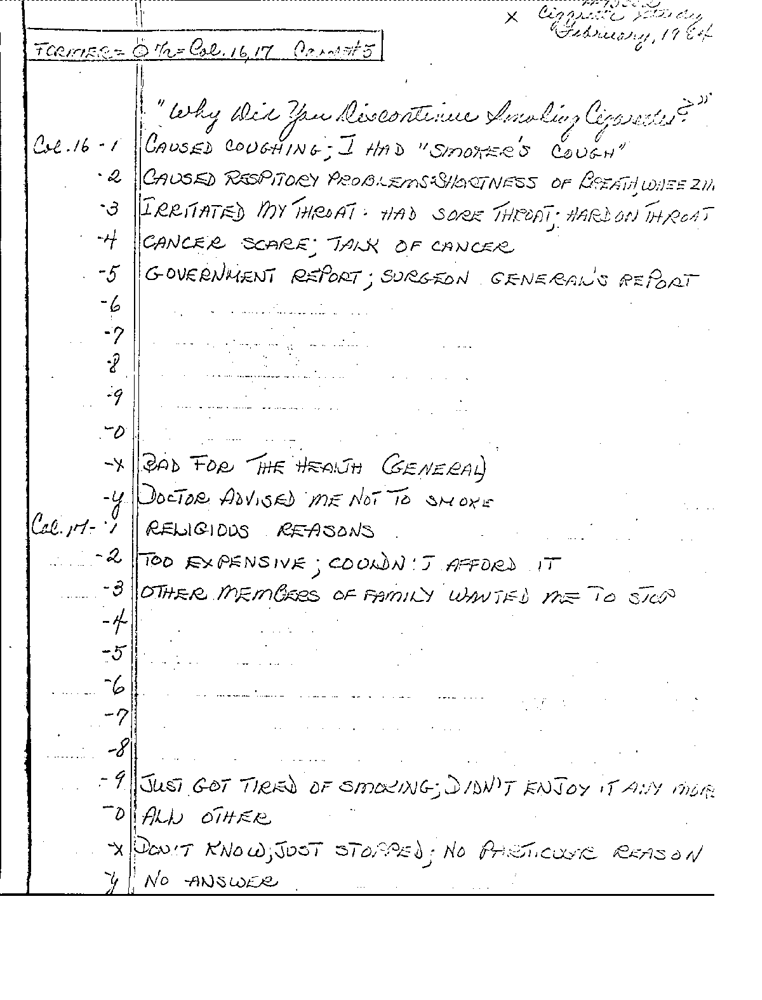 x Cigarette
February, 1964
FORMER = Col. 16, 17 Card #5
"Why Did You Discontinue Smoking Cigarettes?"
Col. 16 - 1 CAUSED COUGHING; I HAD "SMOKER'S COUGH"
-2 CAUSED RESPITORY PROBLEMS: SHORTNESS OF BREATH, WHEEZIN
-3 IRRITATED MY THROAT. HAD SORE THROAT; HARD ON THROAT
-4 CANCER SCARE; TALK OF CANCER
-5 GOVERNMENT REPORT; SURGEON GENERAL'S REPORT
-6
-7
-8
-9
-0
-X BAD FOR THE HEALTH (GENERAL)
-y DOCTOR ADVISED ME NOT TO SMOKE
Col. 17 - 1 RELIGIOUS REASONS
-2 TOO EXPENSIVE; COULDN'T AFFORD IT
-3 OTHER MEMBERS OF FAMILY WANTED ME TO STOP
-4
-5
-6
-7
-8
-9 JUST GOT TIRED OF SMOKING; DIDN'T ENJOY IT ANY MORE
-0 ALL OTHER
-X DON'T KNOW; JUST STOPPED; NO PARTICULAR REASON
-y NO ANSWER